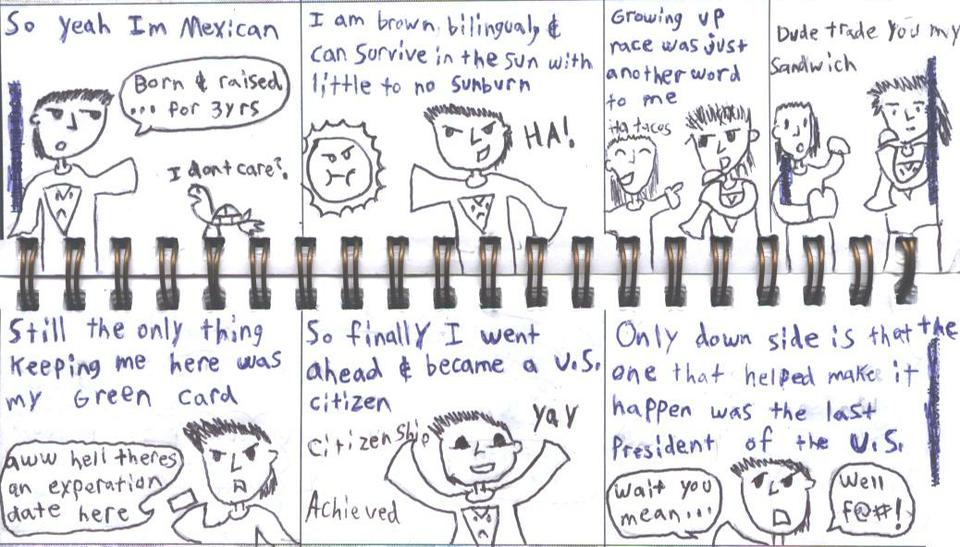 So yeah Im Mexican
Born & raised
... for 3yrs
I dont care?
I am brown, bilingual, &
can survive in the sun with
little to no sunburn
HA!
Growing up
race was just
another word
to me
Ha tacos
Dude trade you my
Sandwich
Still the only thing
keeping me here was
my Green card
aww hell theres
an experation
date here
So finally I went
ahead & became a U.S.
citizen
Citizenship
Achieved
yay
Only down side is that the
one that helped make it
happen was the last
President of the U.S.
wait you
mean...
Well
f@#!